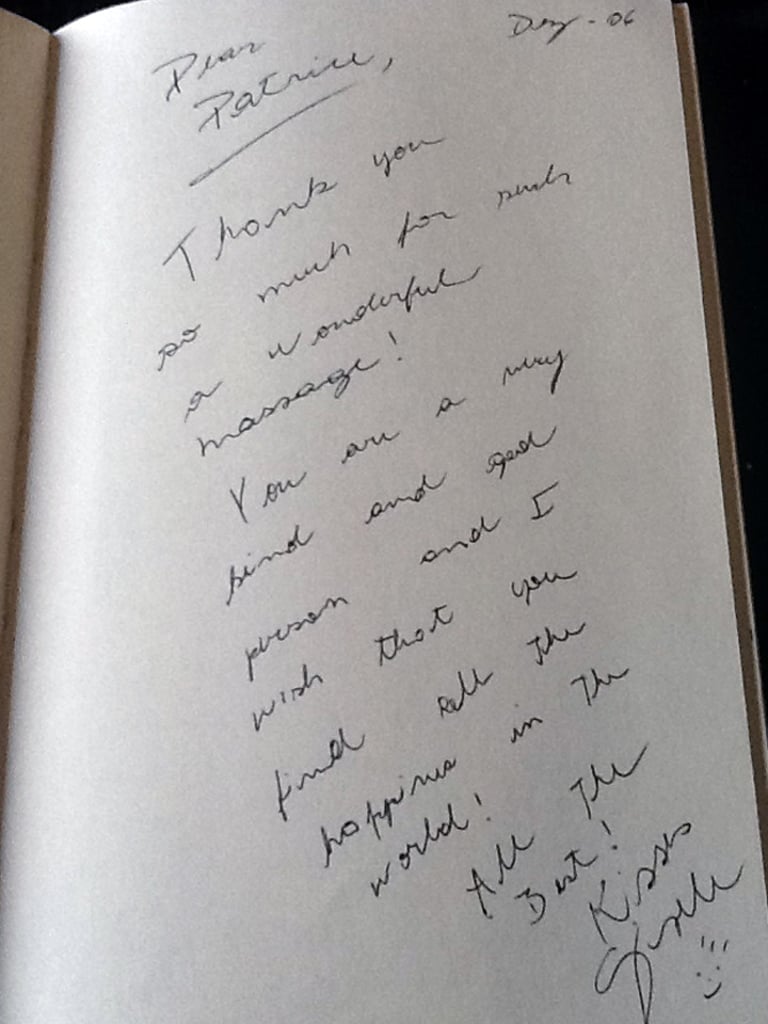 Dez - 06
Dear
Patrice,
Thank you
so much for such
a wonderful
massage!
You are a very
kind and good
person and I
wish that you
find all the
happines in the
world!
All the
Best!
Kisses
Gisele